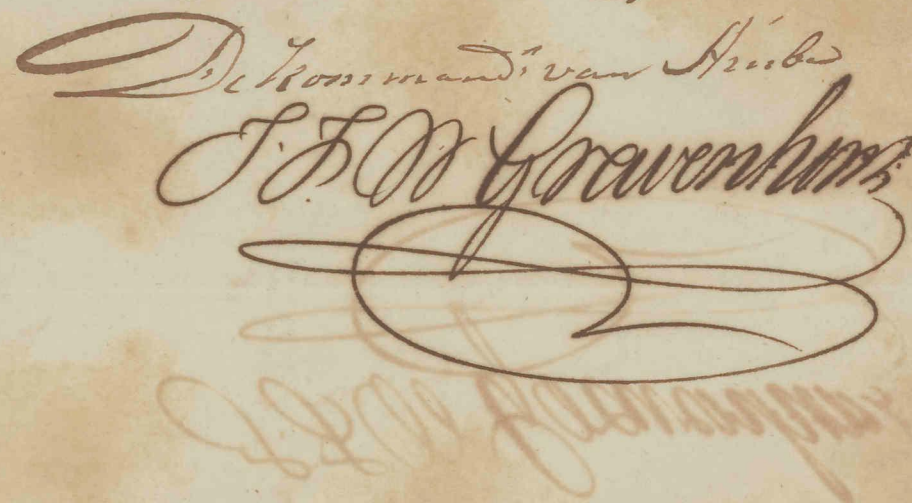 De Kommand.r van Aruba
J. F. W Gravenhorst